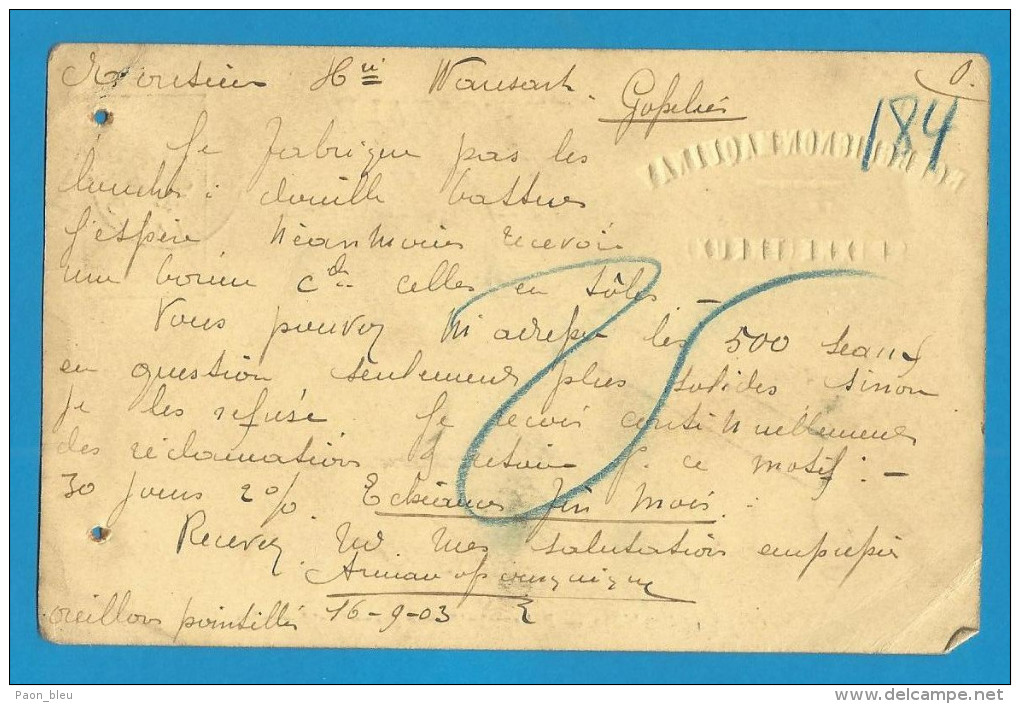 Monsieur Hri Wansart.
Gosselies
184
Je fabrique pas les
louches à douille battues
J'espère néanmoins recevoir
une bonne cde celles en tôles. -
Vous pouvez m'adresser les 500 seaux
en question seulement plus solides sinon
je les refuse. Je reçois continuellement
des réclamations & retour p. ce motif: -
30 jours 2%. Echéances fin mois.
Recevez, M. mes salutations empressées
oreillons pointillés 16-9-03
Paon_bleu
www.delcampe.net